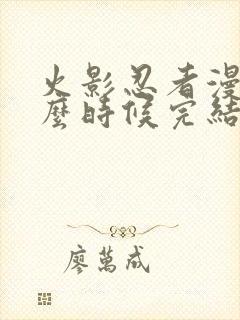 火影忍者漫
麼時候完結
廖萬成